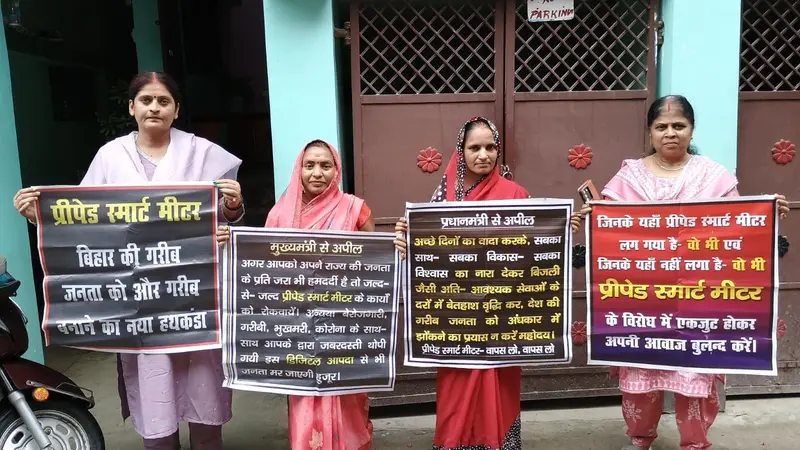 PARKING
प्रीपेड स्मार्ट मीटर
बिहार की गरीब
जनता को और गरीब
बनाने का नया हथकंडा
मुख्यमंत्री से अपील
अगर आपको अपने राज्य की जनता
के प्रति जरा भी हमदर्दी है तो जल्द-
से- जल्द प्रीपेड स्मार्ट मीटर के कार्यो
को रोकवायें। अन्यथा बेरोजगारी,
गरीबी, भुखमरी, कोरोना के साथ-
साथ आपके द्वारा जबरदस्ती थोपी
गयी इस डिजिटल आपदा से भी
जनता मर जाएगी हुजूर!
प्रधानमंत्री से अपील
अच्छे दिनों का वादा करके, सबका
साथ- सबका विकास- सबका
विश्वास का नारा देकर बिजली
जैसी अति- आवश्यक सेवाओं के
दरों में बेतहाशा वृद्धि कर, देश की
गरीब जनता को अंधकार में
झोंकने का प्रयास न करें महोदय।
प्रीपेड स्मार्ट मीटर- वापस लो, वापस लो
जिनके यहाँ प्रीपेड स्मार्ट मीटर
लग गया है- वो भी एवं
जिनके यहाँ नहीं लगा है- वो भी
प्रीपेड स्मार्ट मीटर
के विरोध में एकजुट होकर
अपनी आवाज बुलन्द करें।